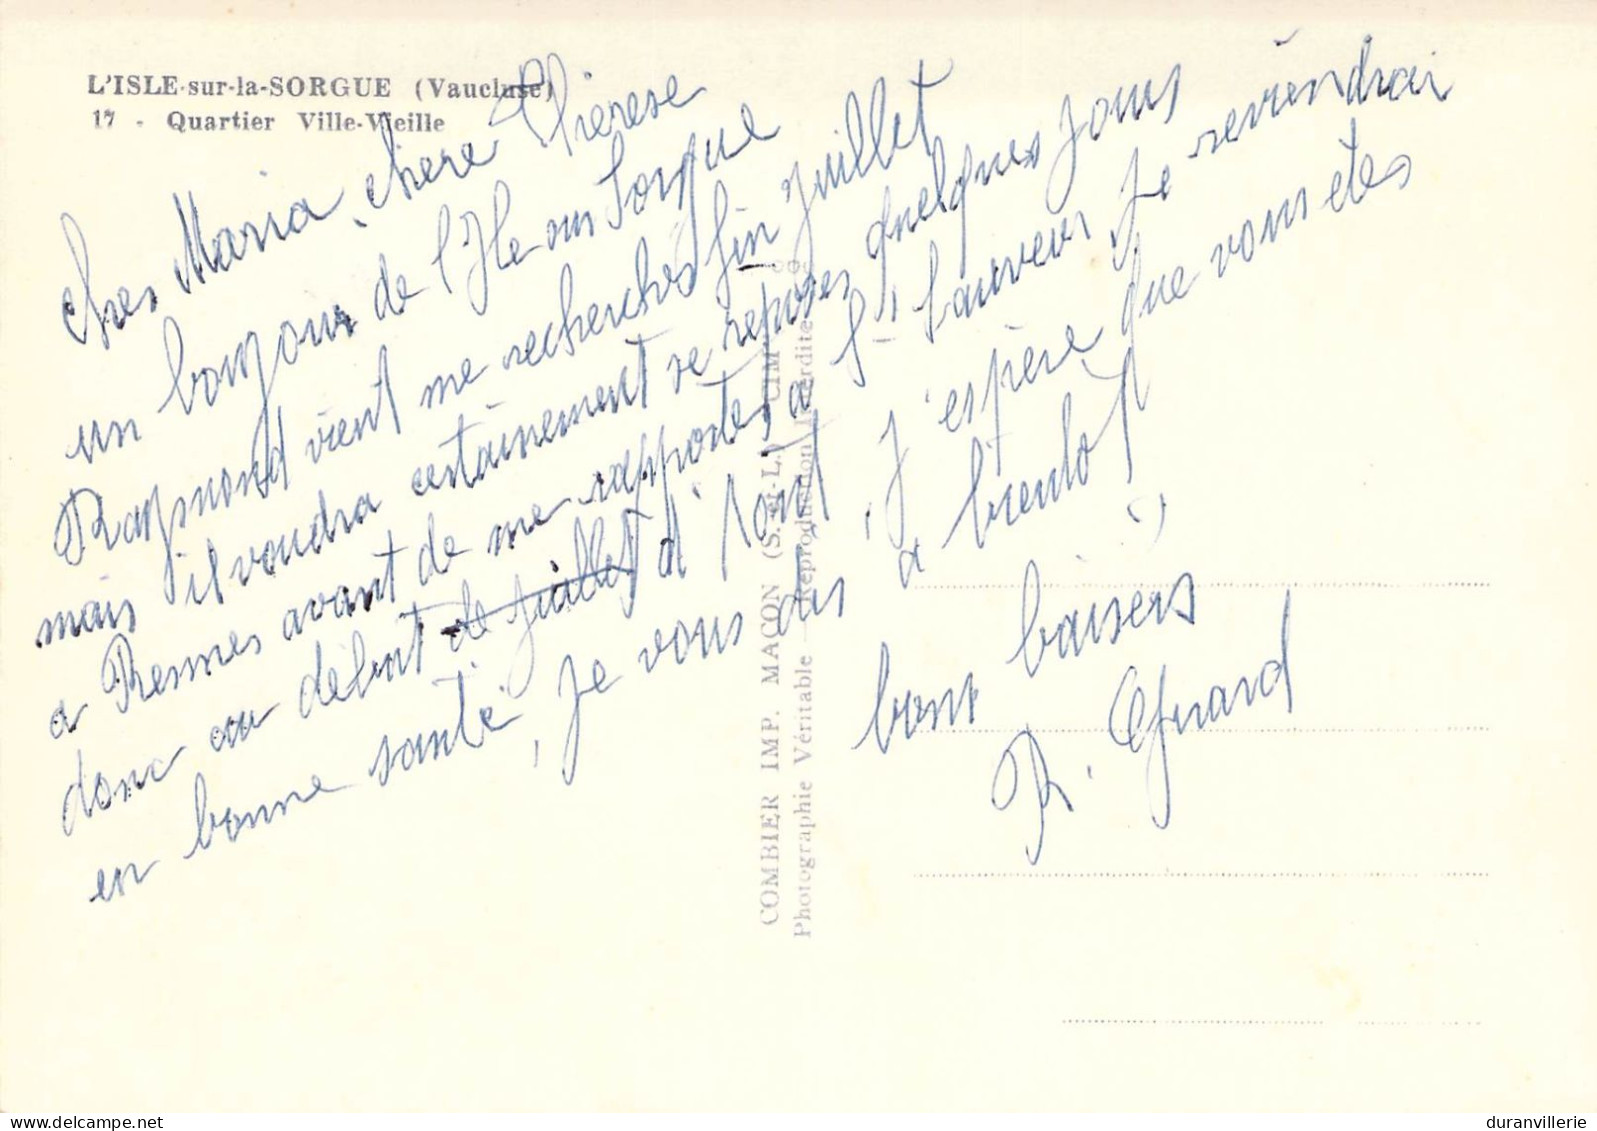 L'ISLE-sur-la-SORGUE (Vaucluse)
17 - Quartier Ville-Vieille
Cher Maria, chere Thérese
un bonjour de l'Isle sur Sorgue
Raymond vient me recherches fin juillet
mais il voudra certainement se reposer quelques jours
a Rennes avant de me rapportes a St Sauveur, je reviendrai
donc au début de juillet d'Aout, j'espère que vous etes
en bonne santé, je vous dis a bientot
bons baisers
R. Gérard
COMBIER IMP. MACON (S.-&-L.) "CIM"
Photographie Véritable - Reproduction Interdite
duranvillerie